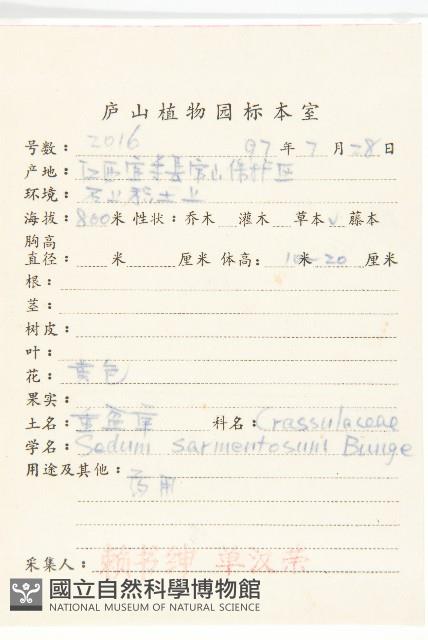 庐山植物园标本室
号数: 2016 97年7月28日
产地: 江西宜丰县官山保护区
环境: 石上积土上
海拔: 800米 性状: 乔木 灌木 草本√ 藤本
胸高
直径: 米 厘米 体高: 10米20 厘米
根:
茎:
树皮:
叶:
花: 黄色
果实:
土名: 垂盆草 科名: Crassulaceae
学名: Sedum sarmentosum Bunge
用途及其他: 药用
采集人: 赖书绅 单汉荣
國立自然科學博物館
NATIONAL MUSEUM OF NATURAL SCIENCE